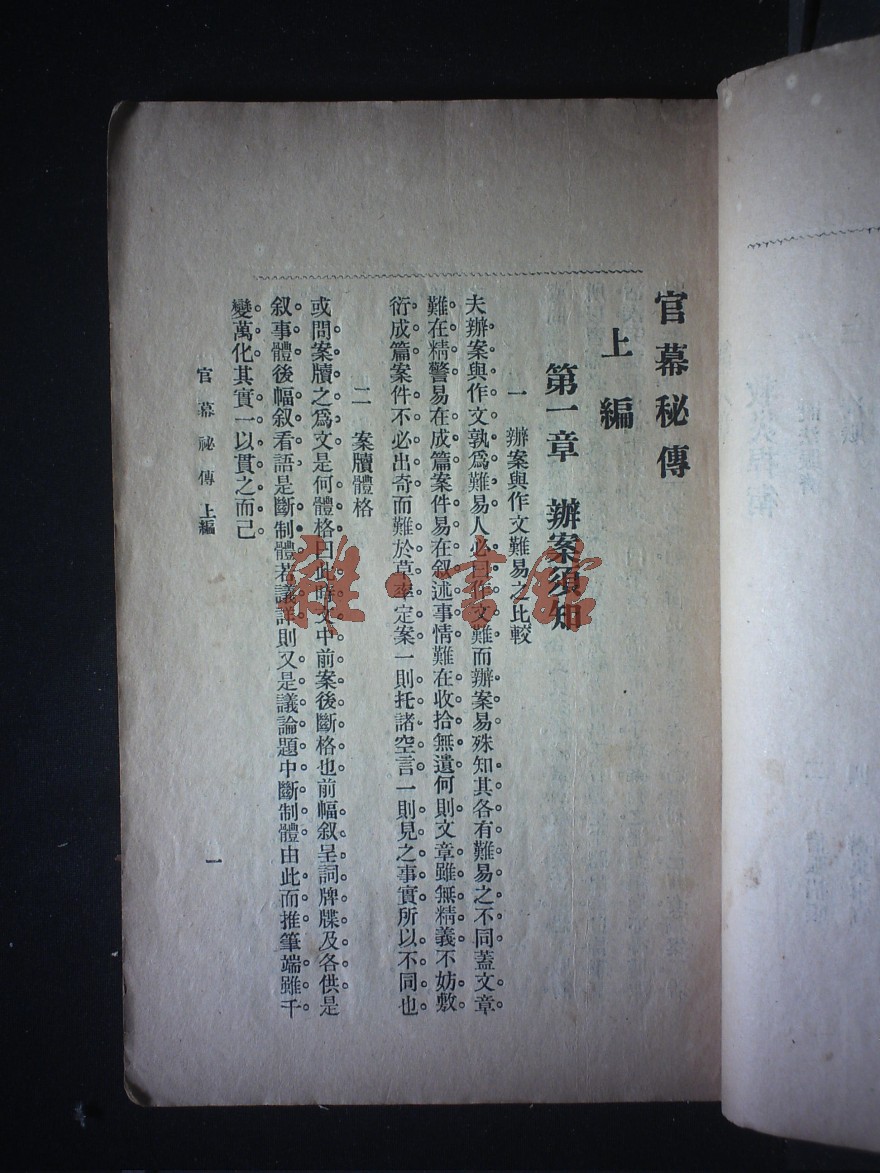 官幕秘傳
上編
第一章 辦案須知
一 辦案與作文難易之比較
夫辦案與作文孰爲難易人必曰作文難而辦案易殊知其各有難易之不同蓋文章
難在精警易在成篇案件易在叙述事情難在收拾無遺何則文章雖無精義不妨敷
衍成篇案件不必出奇而難於草率定案一則托諸空言一則見之事實所以不同也
二 案牘體格
或問案牘之爲文是何體格曰此時文中前案後斷格也前幅叙呈詞牌牒及各供是
叙事體後幅叙看語是斷制體若議詳則又是議論題中斷制體由此而推筆端雖千
變萬化其實一以貫之而己
官幕祕傳 上編
一
雜·書館